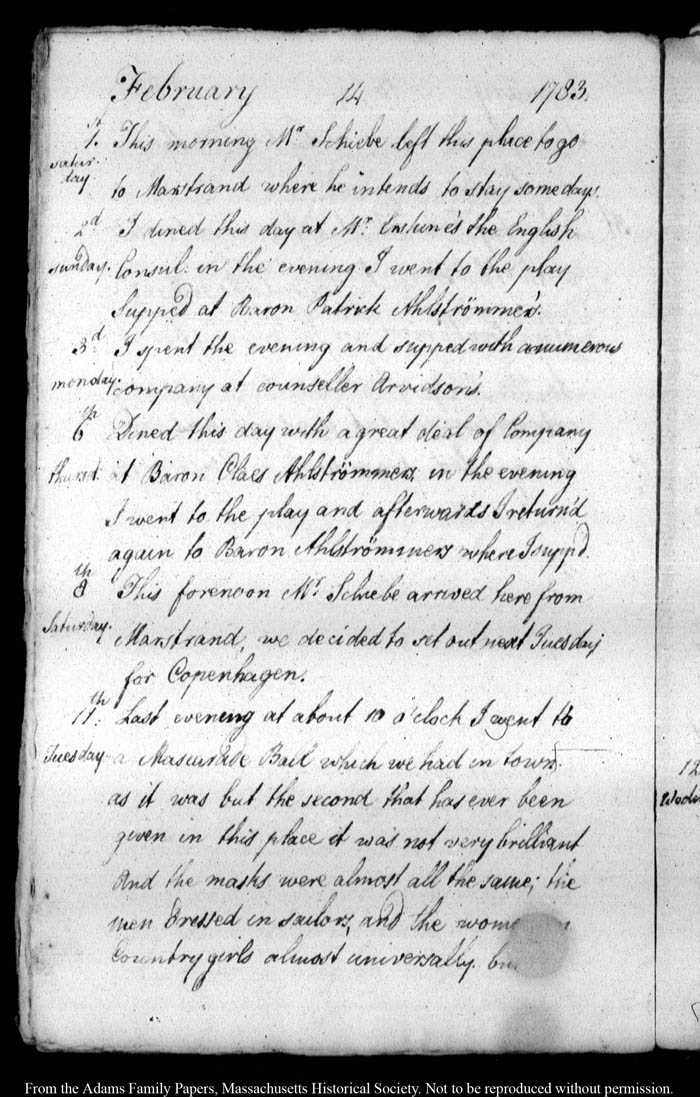 February 14 1783.
1st. This morning Mr Schiebe left this place to go
Saturday to Marstrand where he intends to stay some days.
2d I dined this day at Mr. Erskine's the English
Sunday. Consul. in the evening I went to the play
Supped at Baron Patrick Ahlströmmer's.
3d. I spent the evening and supped with a numerous
monday. company at counseller Arvidson's.
6th Dined this day with a great deal of Company
thursd. at Baron Claes Ahlströmmers, in the evening
I went to the play and afterwards I return'd
again to Baron Ahlströmmers where I supp'd.
8th This forenoon Mr. Schiebe arrived here from
Saturday. Marstrand, we decided to set out next Tuesday
for Copenhagen.
11th. Last evening at about 10 o'cloch I went to
Tuesday a Mascurade Ball which we had in town.
as it was but the second that has ever been
given in this place it was not very brilliant
And the masks were almost all the same; the
men dressed in sailors, and the
Country girls almost universally.
12
From the Adams Family Papers, Massachusetts Historical Society. Not to be reproduced without permission.